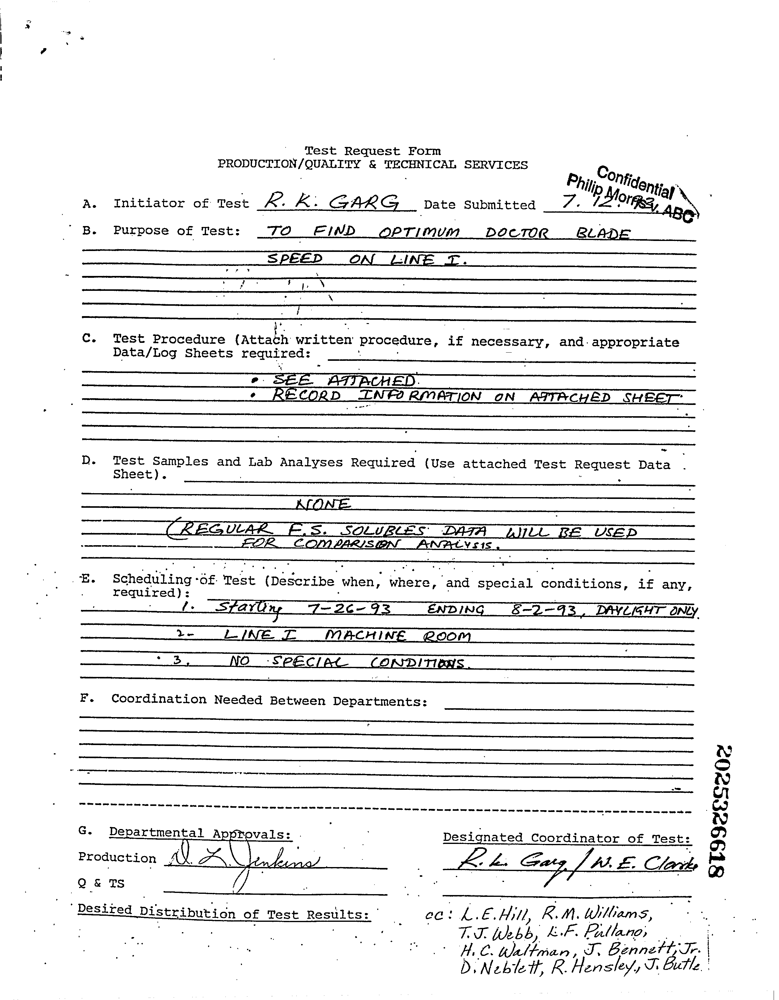 Test Request Form
PRODUCTION/QUALITY & TECHNICAL SERVICES
Confidential
Philip Morris, ABC
A. Initiator of Test R. K. GARG Date Submitted 7. 12.
B. Purpose of Test: TO FIND OPTIMUM DOCTOR BLADE
SPEED ON LINE I.
C. Test Procedure (Attach written procedure, if necessary, and appropriate
Data/Log Sheets required:
• SEE ATTACHED.
• RECORD INFORMATION ON ATTACHED SHEET.
D. Test Samples and Lab Analyses Required (Use attached Test Request Data
Sheet).
NONE
(REGULAR F.S. SOLUBLES DATA WILL BE USED
FOR COMPARISION ANALYSIS.
E. Scheduling of Test (Describe when, where, and special conditions, if any,
required):
1. Starting 7-26-93 ENDING 8-2-93, DAYLIGHT ONLY.
2- LINE I MACHINE ROOM
3. NO SPECIAL CONDITIONS.
F. Coordination Needed Between Departments:
G. Departmental Approvals:
Designated Coordinator of Test:
Production D. L. Jenkins
R. K. Garg / W. E. Clarke
Q & TS
Desired Distribution of Test Results:
cc: L.E. Hill, R.M. Williams,
T.J. Webb, L.F. Pullano,
H.C. Waltman, J. Bennett, Jr.
D. Neblett, R. Hensley, J. Butle
2025326618